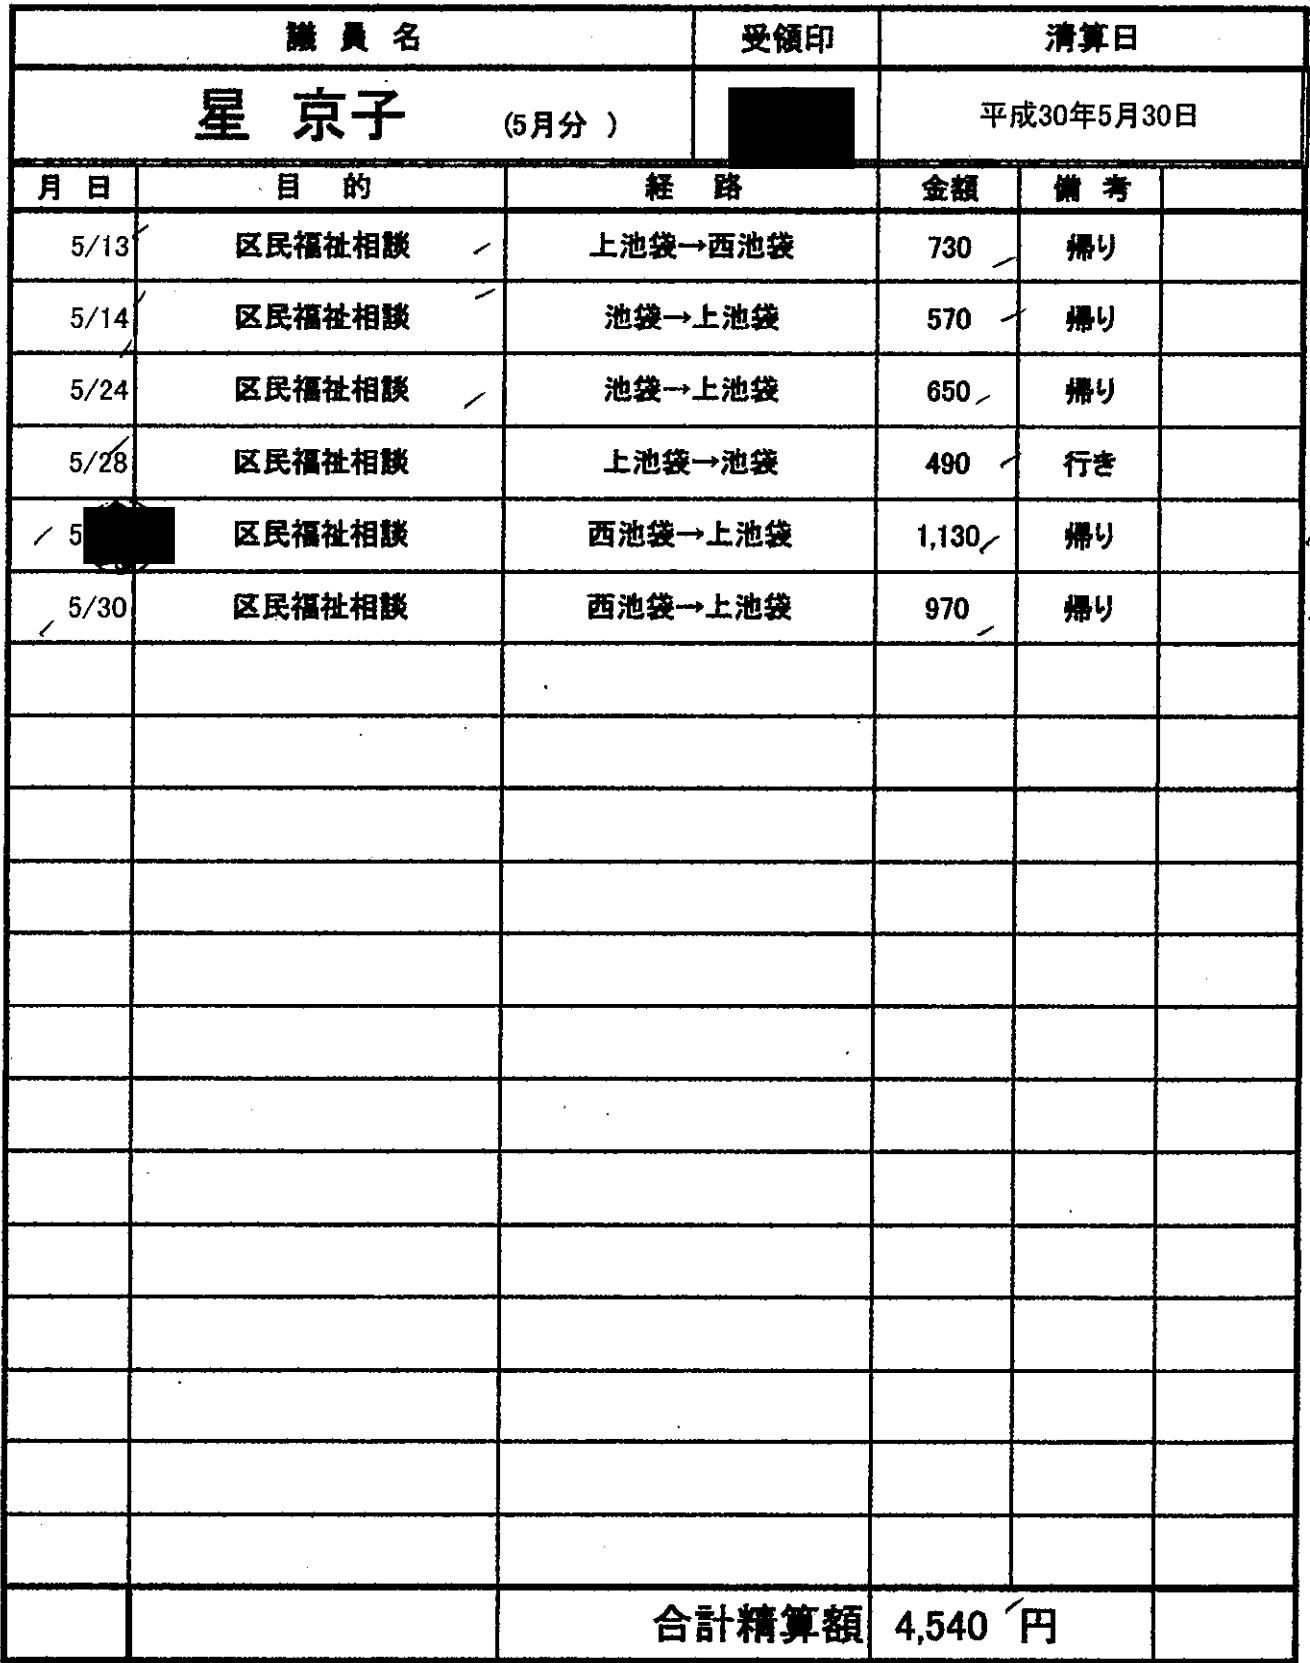 議員名 受領印 清算日
星 京子 (5月分 ) 平成30年5月30日
月 日 目 的 経 路 金額 備 考
5/13 区民福祉相談 上池袋→西池袋 730 帰り
5/14 区民福祉相談 池袋→上池袋 570 帰り
5/24 区民福祉相談 池袋→上池袋 650 帰り
5/28 区民福祉相談 上池袋→池袋 490 行き
5 区民福祉相談 西池袋→上池袋 1,130 帰り
5/30 区民福祉相談 西池袋→上池袋 970 帰り
合計精算額 4,540 円